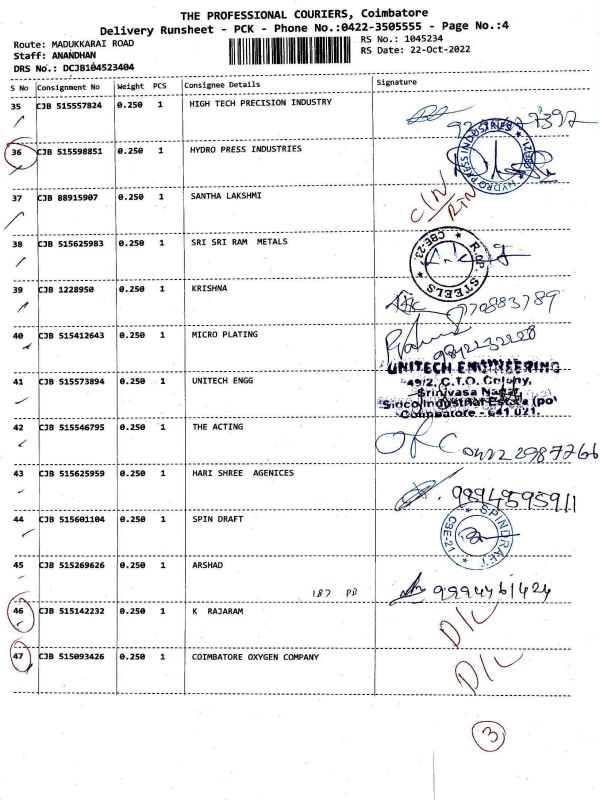 THE PROFESSIONAL COURIERS, Coimbatore
Delivery Runsheet - PCK - Phone No.:0422-3505555 - Page No.:4
Route: MADUKKARAI ROAD
RS No.: 1045234
Staff: ANANDHAN
RS Date: 22-Oct-2022
DRS No.: DCJB104523404
S No Consignment No Weight PCS Consignee Details Signature
35 CJB 515557824 0.250 1 HIGH TECH PRECISION INDUSTRY
36 CJB 515598851 0.250 1 HYDRO PRESS INDUSTRIES
HYDRO PRESS INDUSTRIES
37 CJB 88915907 0.250 1 SANTHA LAKSHMI
38 CJB 515625983 0.250 1 SRI SRI RAM METALS
CBE-23 STEELS
39 CJB 1228950 0.250 1 KRISHNA
40 CJB 515412643 0.250 1 MICRO PLATING
41 CJB 515573894 0.250 1 UNITECH ENGG
UNITECH ENGINEERING
49/2, C.T.O. Colony,
Srinivasa Nagar,
Sidco Industrial Estate (po)
Coimbatore - 641 021.
42 CJB 515546795 0.250 1 THE ACTING
0422 2987266
43 CJB 515625959 0.250 1 HARI SHREE AGENICES
9894595911
44 CJB 515601104 0.250 1 SPIN DRAFT
SPINDRAFT CBE-21
45 CJB 515269626 0.250 1 ARSHAD
187 PD 9994461424
46 CJB 515142232 0.250 1 K RAJARAM D/L
47 CJB 515093426 0.250 1 COIMBATORE OXYGEN COMPANY D/L
3